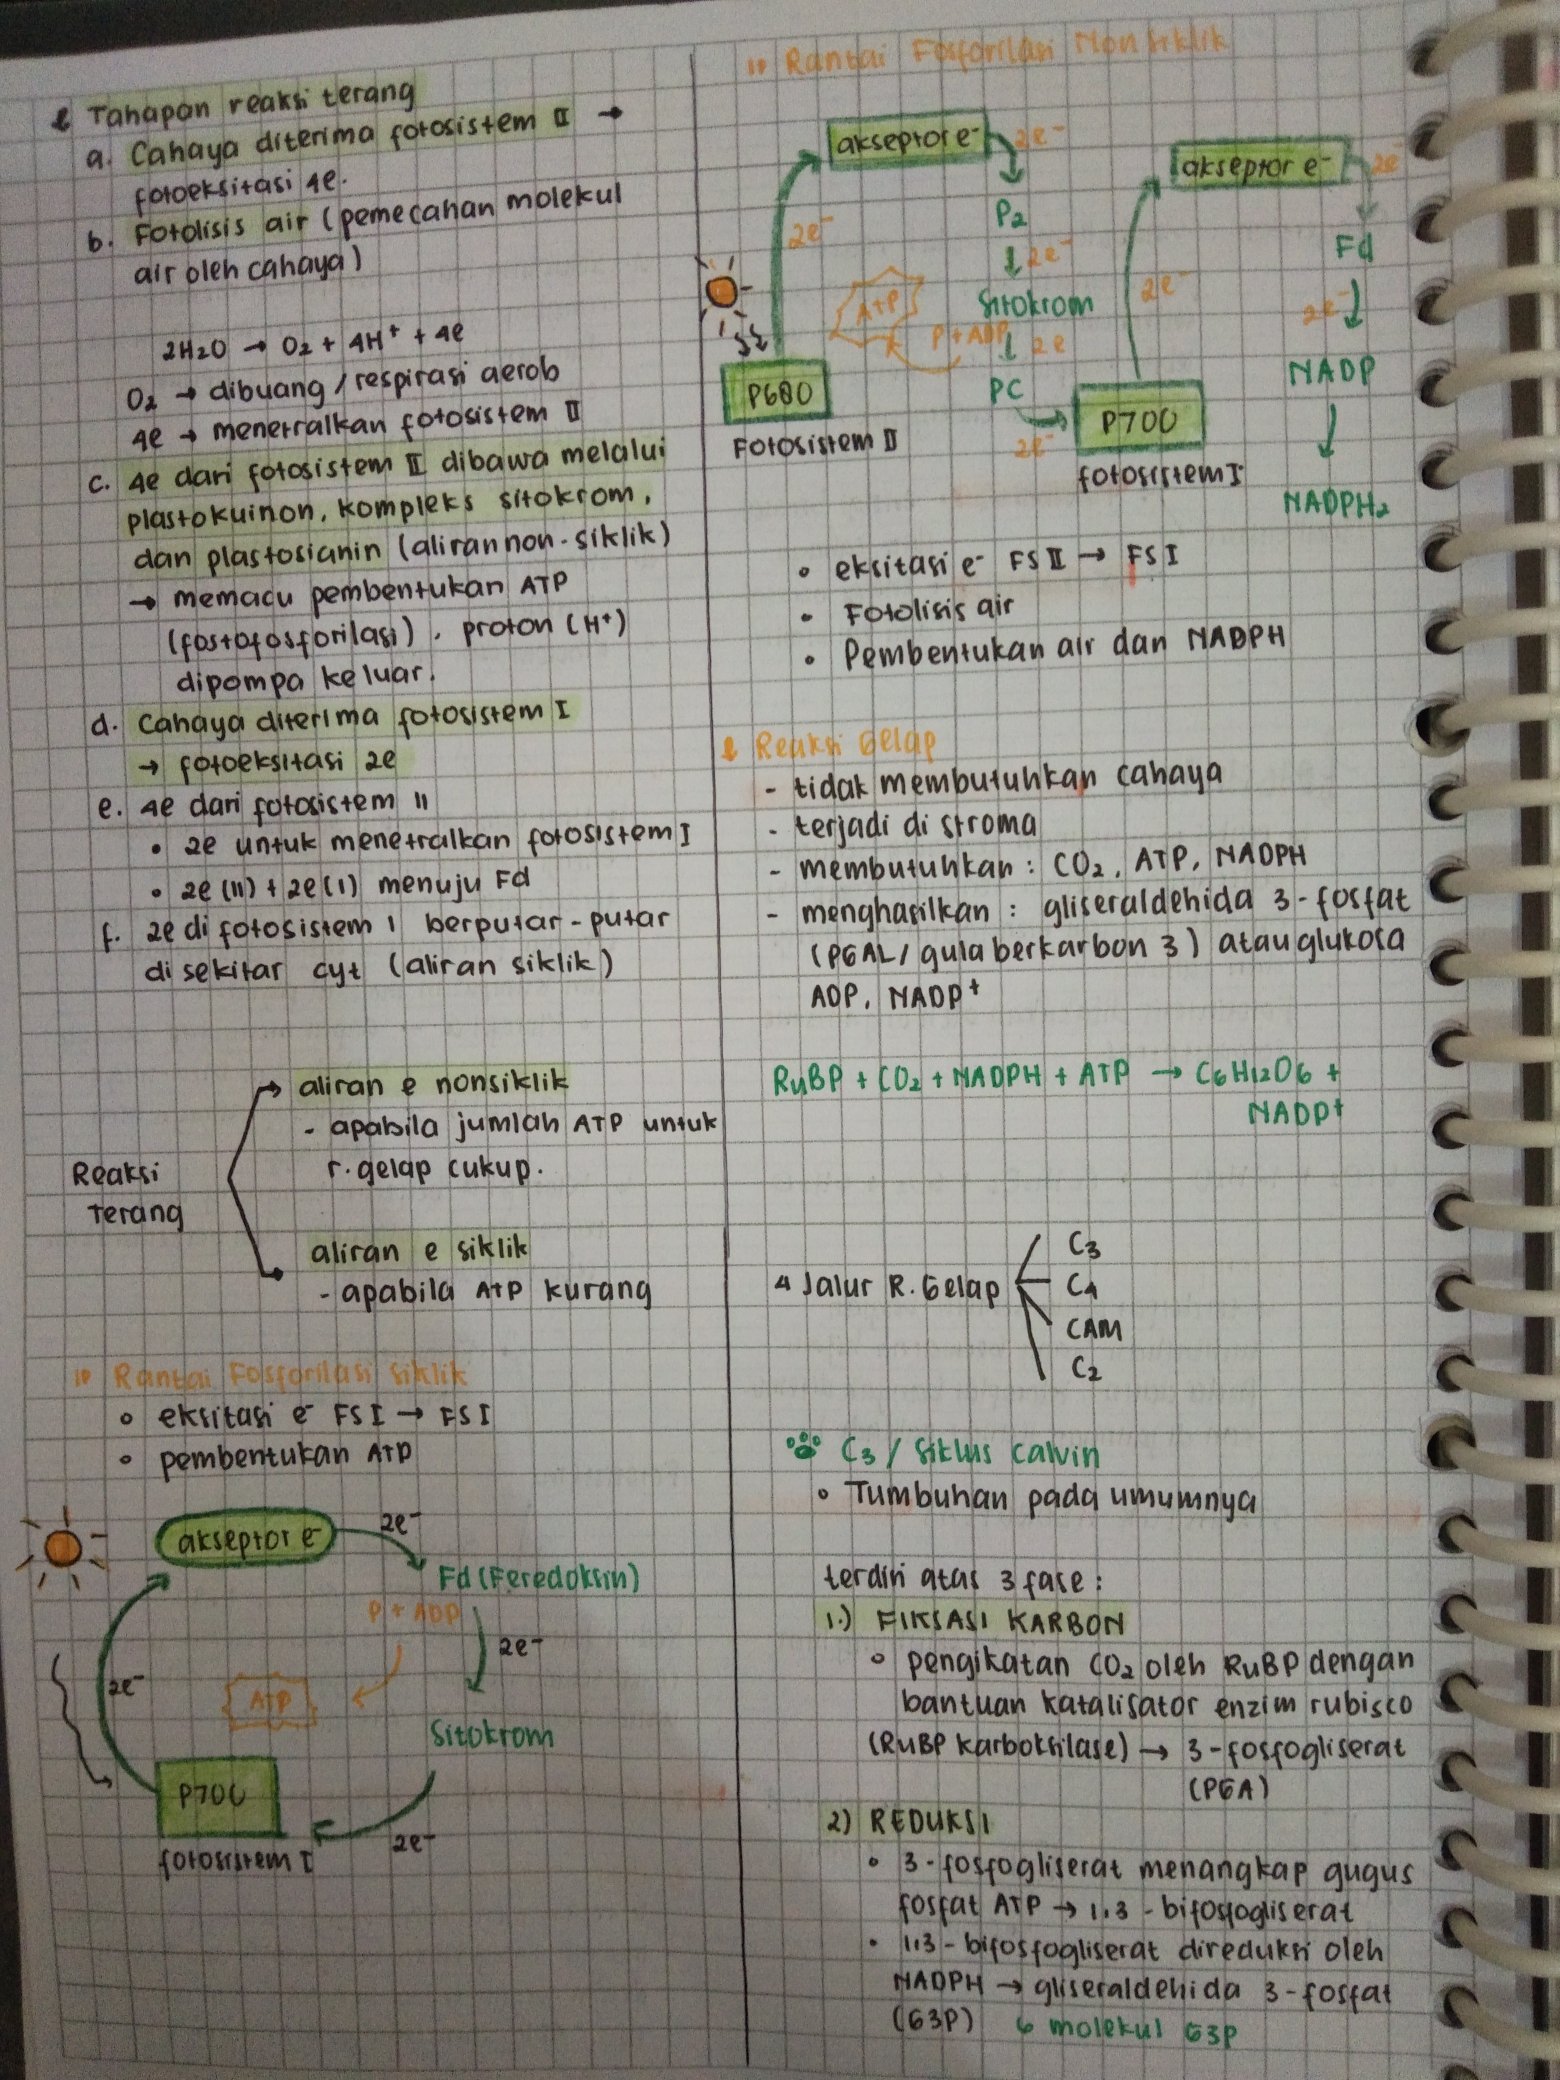 Tahapan reaksi terang
a. Cahaya diterima fotosistem II →
fotoeksitasi 4e.
b. Fotolisis air (pemecahan molekul
air oleh cahaya)
2H2O → O2 + 4H+ + 4e
O2 → dibuang / respirasi aerob
4e → menetralkan fotosistem II
c. 4e dari fotosistem II dibawa melalui
plastokuinon, kompleks sitokrom,
dan plastosianin (aliran non-siklik)
→ memacu pembentukan ATP
(fostofosforilasi), proton (H+)
dipompa keluar.
d. Cahaya diterima fotosistem I
→ fotoeksitasi 2e
e. 4e dari fotosistem II
• 2e untuk menetralkan fotosistem I
• 2e (II) + 2e (I) menuju Fd
f. 2e di fotosistem I berputar-putar
disekitar cyt (aliran siklik)
Reaksi
Terang
aliran e nonsiklik
- apabila jumlah ATP untuk
r. gelap cukup.
aliran e siklik
- apabila ATP kurang
Rantai Fosforilasi Siklik
• eksitasi e- FS I → FS I
• pembentukan ATP
akseptor e-
2e-
Fd (Feredoksin)
P + ADP
2e-
2e-
ATP
Sitokrom
P700
2e-
fotosistem I
Rantai Fosforilasi Non Siklik
akseptor e-
2e-
akseptor e-
2e-
P2
2e-
2e-
Fd
ATP
Sitokrom
2e-
2e-
P + ADP
2e
P680
PC
NADP
P700
2e-
Fotosistem II
fotosistem I
NADPH2
• eksitasi e- FS II → FS I
• Fotolisis air
• Pembentukan air dan NADPH
Reaksi Gelap
- tidak membutuhkan cahaya
- terjadi di stroma
- membutuhkan : CO2, ATP, NADPH
- menghasilkan : gliseraldehida 3-fosfat
(PGAL / gula berkarbon 3) atau glukosa
ADP, NADP+
RuBP + CO2 + NADPH + ATP → C6H12O6 +
NADP+
4 Jalur R. Gelap
C3
C4
CAM
C2
C3 / Siklus Calvin
• Tumbuhan pada umumnya
terdiri atas 3 fase :
1.) FIKSASI KARBON
• pengikatan CO2 oleh RuBP dengan
bantuan katalisator enzim rubisco
(RuBP karboksilase) → 3-fosfogliserat
(PGA)
2) REDUKSI
• 3-fosfogliserat menangkap gugus
fosfat ATP → 1,3-bifosfogliserat
• 1,3-bifosfogliserat direduksi oleh
NADPH → gliseraldehida 3-fosfat
(G3P) 6 molekul G3P